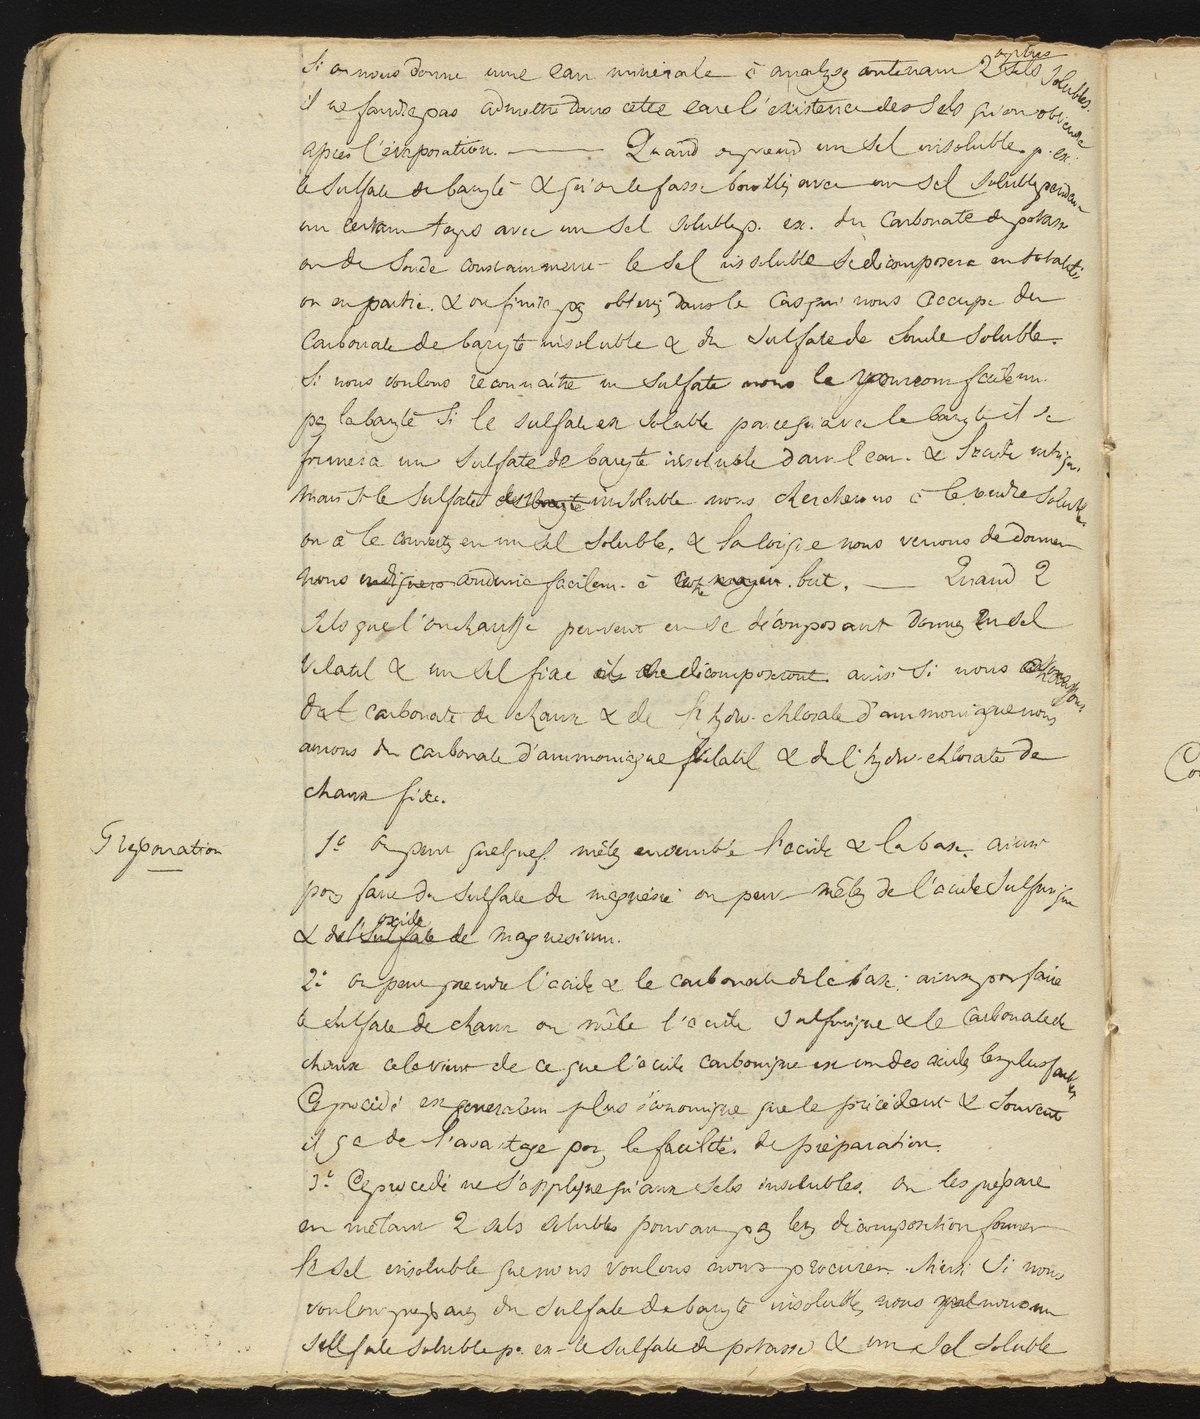 Si on nous donne une eau minérale à analyser contenant 2 ou plus. sels solubles.
il ne faudra pas admettre dans cette eau l'existence des sels qu'on obtiendra
après l'évaporation. ——— Quand on prend un sel insoluble p. ex.
le sulfate de baryte & qu'on le fasse bouillir avec un sel soluble pendant
un certain temps avec un sel soluble p. ex. du carbonate de potasse
ou de soude constamment le sel insoluble se décomposera en totalité
ou en partie. & on finira par obtenir dans le cas qui nous occupe du
carbonate de baryte insoluble & du sulfate de soude soluble.
Si nous voulons reconnaître un sulfate nous le pourrons facilem.
par la baryte si le sulfate est soluble parce qu'avec la baryte il se
formera un sulfate de baryte insoluble dans l'eau. & l'acide nitrique.
mais si le sulfate est insoluble nous chercherons à le rendre soluble
ou à le convertir en un sel soluble. & la loi que nous venons de donner
nous conduira facilem. à notre but. — Quand 2
sels que l'on chauffe peuvent en se décomposant donner un sel
volatil & un sel fixe ils se décomposeront. ainsi si nous
du carbonate de chaux & de l'hydro-chlorate d'ammoniaque nous
aurons du carbonate d'ammoniaque volatil & de l'hydro-chlorate de
chaux fixe.
Préparation
1º On peut quelquef. mêler ensemble l'acide & la base. ainsi
pour faire du sulfate de magnésie on peut mêler de l'acide sulfurique
& de l'oxide de magnesium.
2º on peut prendre l'acide & le carbonate de la base; ainsi pour faire
le sulfate de chaux on mêle l'acide sulfurique & le carbonate de
chaux cela vient de ce que l'acide carbonique est un des acides les plus faibles
Ce procédé est generalem. plus économique que le précédent & souvent
il y a de l'avantage pour la facilité de préparation.
3º Ce procédé ne s'applique qu'aux sels insolubles. on les prépare
en mêlant 2 sels solubles pouvant par leur décomposition former
le sel insoluble que nous voulons nous procurer. Ainsi si nous
voulons préparer du sulfate de baryte insoluble, nous prenons un
sulfate soluble p. ex. le sulfate de potasse & un sel soluble